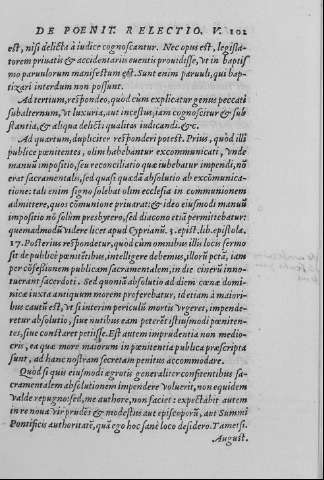 DE POENIT. RELECTIO. V. 102
est, nisi delicta à iudice cognoscantur. Nec opus est, legisla-
torem priuatis & accidentariis euentis prouidisse, vt in baptis
mo paruulorum manifestum est. Sunt enim paruuli, qui bap-
tizari interdum non possunt.
Ad tertium, respondeo, quod cùm explicatur genus peccati
subalternum, vt luxuria, aut incestus, iam cognoscitur & sub
stantia, & aliqua delicti qualitas indicandi. &c.
Ad quartum, dupliciter responderi potest. Prius, quòd illi
publicæ pœnitentes, olim habebantur excommunicati, Vnde
manuũ impositio, seu reconciliatio quæ iubebatur impendi, nō
erat sacramentalis, sed quasi quædā absolutio ab excōmunica-
tione: tali enim signo solebat olim ecclesia in communionem
admittere, quos cōmunione priuarat: & ideo eiusmodi manuũ
impositio nō solùm presbytero, sed diacono etiā permitebatur:
quemadmodũ videre licet apud Cyprianũ. 3. epist. lib. epistola.
17. Posterius respondetur, quod cùm omnibus illis locis sermo
sit de publicè pœnitētibus, intelligere debemus, illorũ pctā, iam
per cōfeßionem publicam sacramentalem, in die cinerũ inno-
tuerant sacerdoti. Sed quoniā absolutio ad diem cœnæ domi-
nicæ iuxta antiquum morem proferebatur, id etiam à maiori-
bus cautũ est, vt si interim periculũ mortis vrgeret, impende-
retur absolutio, siue nutibus eam peterēt istiusmodi pœniten-
tes, siue constaret petiisse. Est autem imprudentia non medio-
cris, ea quæ more maiorum in pœnitentia publica præscripta
sunt, ad hanc nostram secretam penitus accommodare.
Quod si quis eiusmodi ægrotis generaliter confitentibus sa-
cramentalem absolutionem impendere voluerit, non equidem
valde repugno: sed, me authore, non faciet: expectābit autem
in re noua vir prudēs & modestus aut episcoporũ, aut Summi
Pontificis authoritatē, quā ego hoc sanè loco desidero. Tametsi.
August.